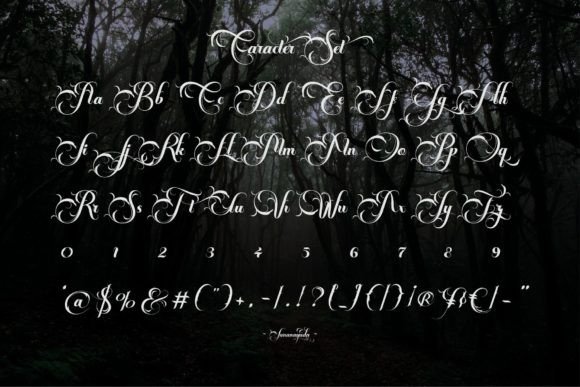 Caracter Set
Aa Bb Cc Dd Ee Ff Gg Hh
Ii Jj Kk Ll Mm Nn Oo Pp Qq
Rr Ss Tt Uu Vv Ww Xx Yy Zz
0 1 2 3 4 5 6 7 8 9
'@$%&#(")+,-/.!?[_]{|}